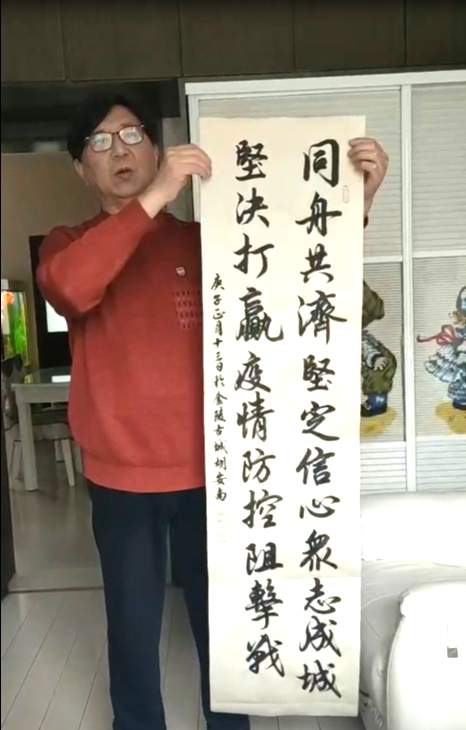 同舟共濟堅定信心衆志成城
堅决打贏疫情防控阻擊戰
庚子正月十三日於金陵古城胡安南